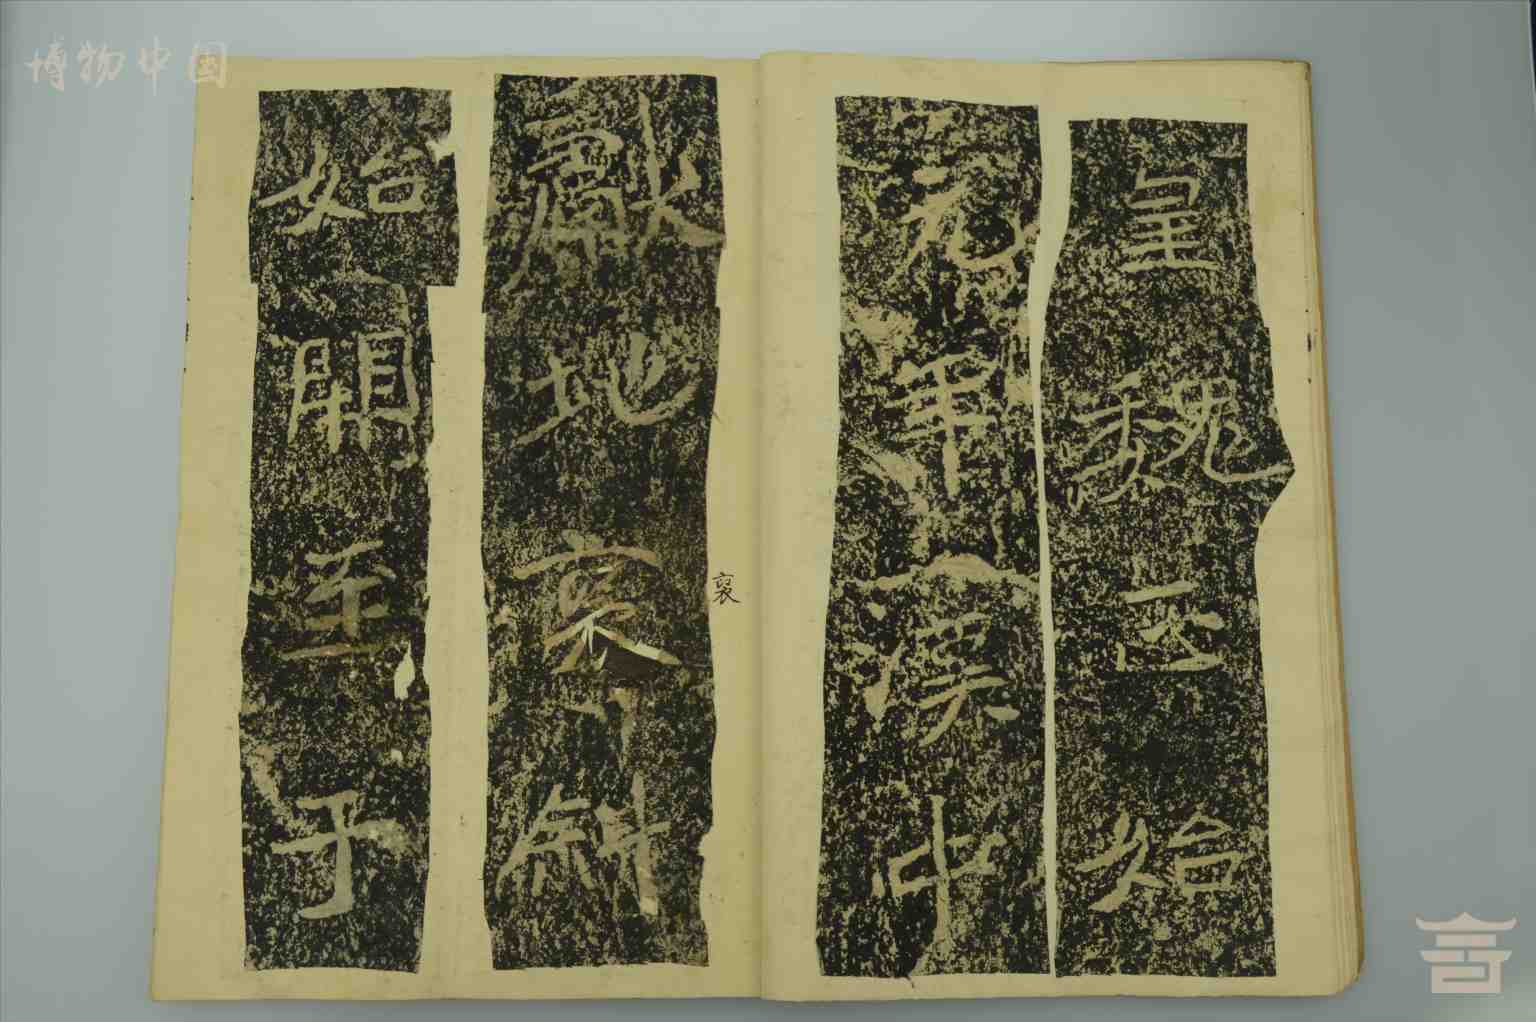 博物中国
皇魏正始
元年漢中
獻地裒斜
裒
始開至于